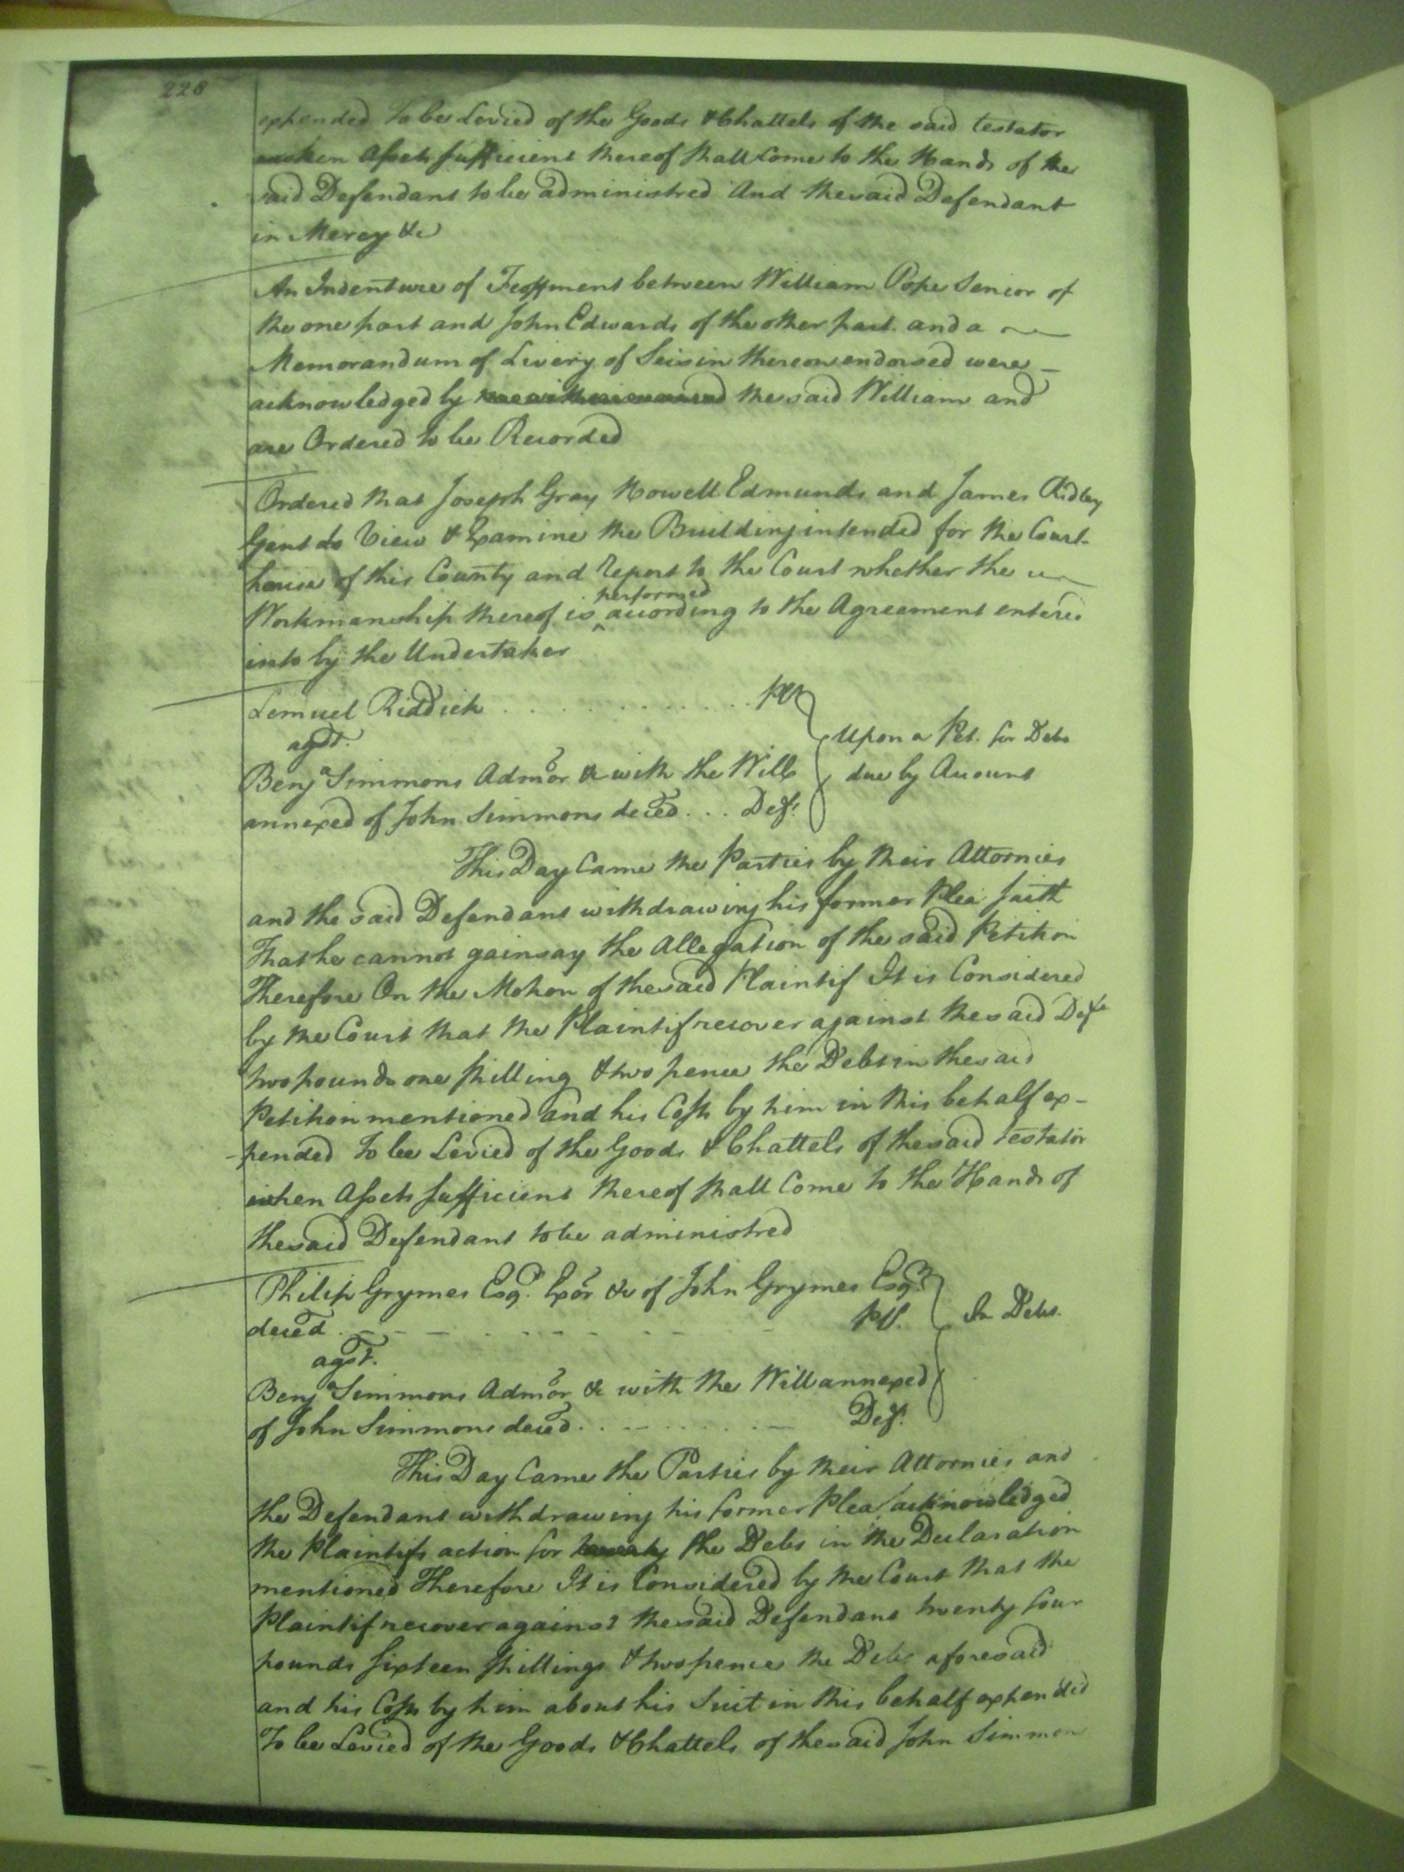 228
expended To be Levied of the Goods & Chattels of the said testator
when Assets sufficient thereof shall come to the Hands of the
said Defendant to be administred And the said Defendant
in Mercy &c
An Indenture of Feoffment between William Pope Senior of
the one part and John Edwards of the other part and a
Memorandum of Livery of Seisin thereon endorsed were
acknowledged by the said William and
are Ordered to be Recorded
Ordered that Joseph Gray Howell Edmunds and James Ridley
Gent do View & Examine the Building intended for the Court-
house of this County and Report to the Court whether the
performed
Workmanship thereof is ^ according to the Agreement entered
into by the Undertaker
Lemuel Riddick . . . . . . . . . . . . Plt
agst.
Upon a Pet. for Debt
Benja Simmons Admor &c with the Will
due by Account
annexed of John Simmons deced . . . Deft.
This Day Came the Parties by their Attornies
and the said Defendant withdrawing his former Plea saith
That he cannot gainsay the Allegation of the said Petition
Therefore On the Motion of the said Plaintif It is Considered
by the Court that the Plaintif recover against the said Deft
two pounds one shilling & two pence the Debt in the said
Petition mentioned and his Costs by him in this behalf ex-
-pended To be Levied of the Goods & Chattels of the said testator
when Assets sufficient thereof shall Come to the Hands of
the said Defendant to be administred
Philip Grymes Esqr. Exor &c of John Grymes Esqr.
deced . - - - . . - - - - Plt.
In Debt.
agst.
Benja Simmons Admor &c with the Will annexed
of John Simmons deced . . - - . . . . - Deft.
This Day Came the Parties by their Attornies and
the Defendant withdrawing his former Plea acknowledged
the Plaintifs action for twenty the Debt in the Declaration
mentioned Therefore It is Considered by the Court that the
Plaintif recover against the said Defendant twenty four
pounds sixteen shillings & two pence the Debt aforesaid
and his Costs by him about his Suit in this behalf expended
To be Levied of the Goods & Chattels of the said John Simmon